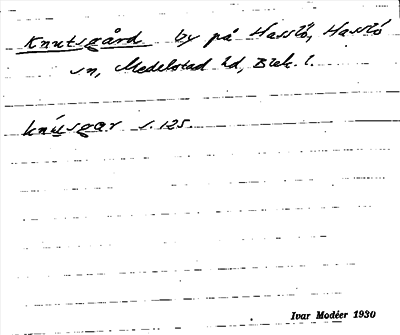 Knutsgård by på Hasslö, Hasslö
sn, Medelstad hd, Blek. l.
knúsgar s. 125.
Ivar Modéer 1930